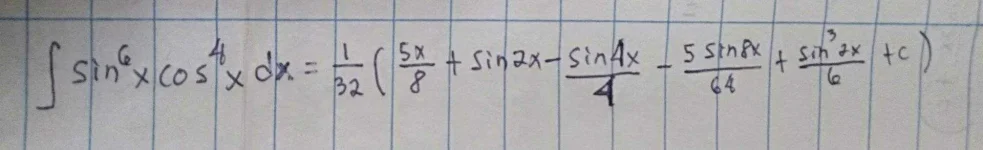 ∫ sin⁶x cos⁴x dx = 1/32 ( 5x/8 + sin2x - sin4x/4 - 5 sin8x/64 + sin³2x/6 + c )